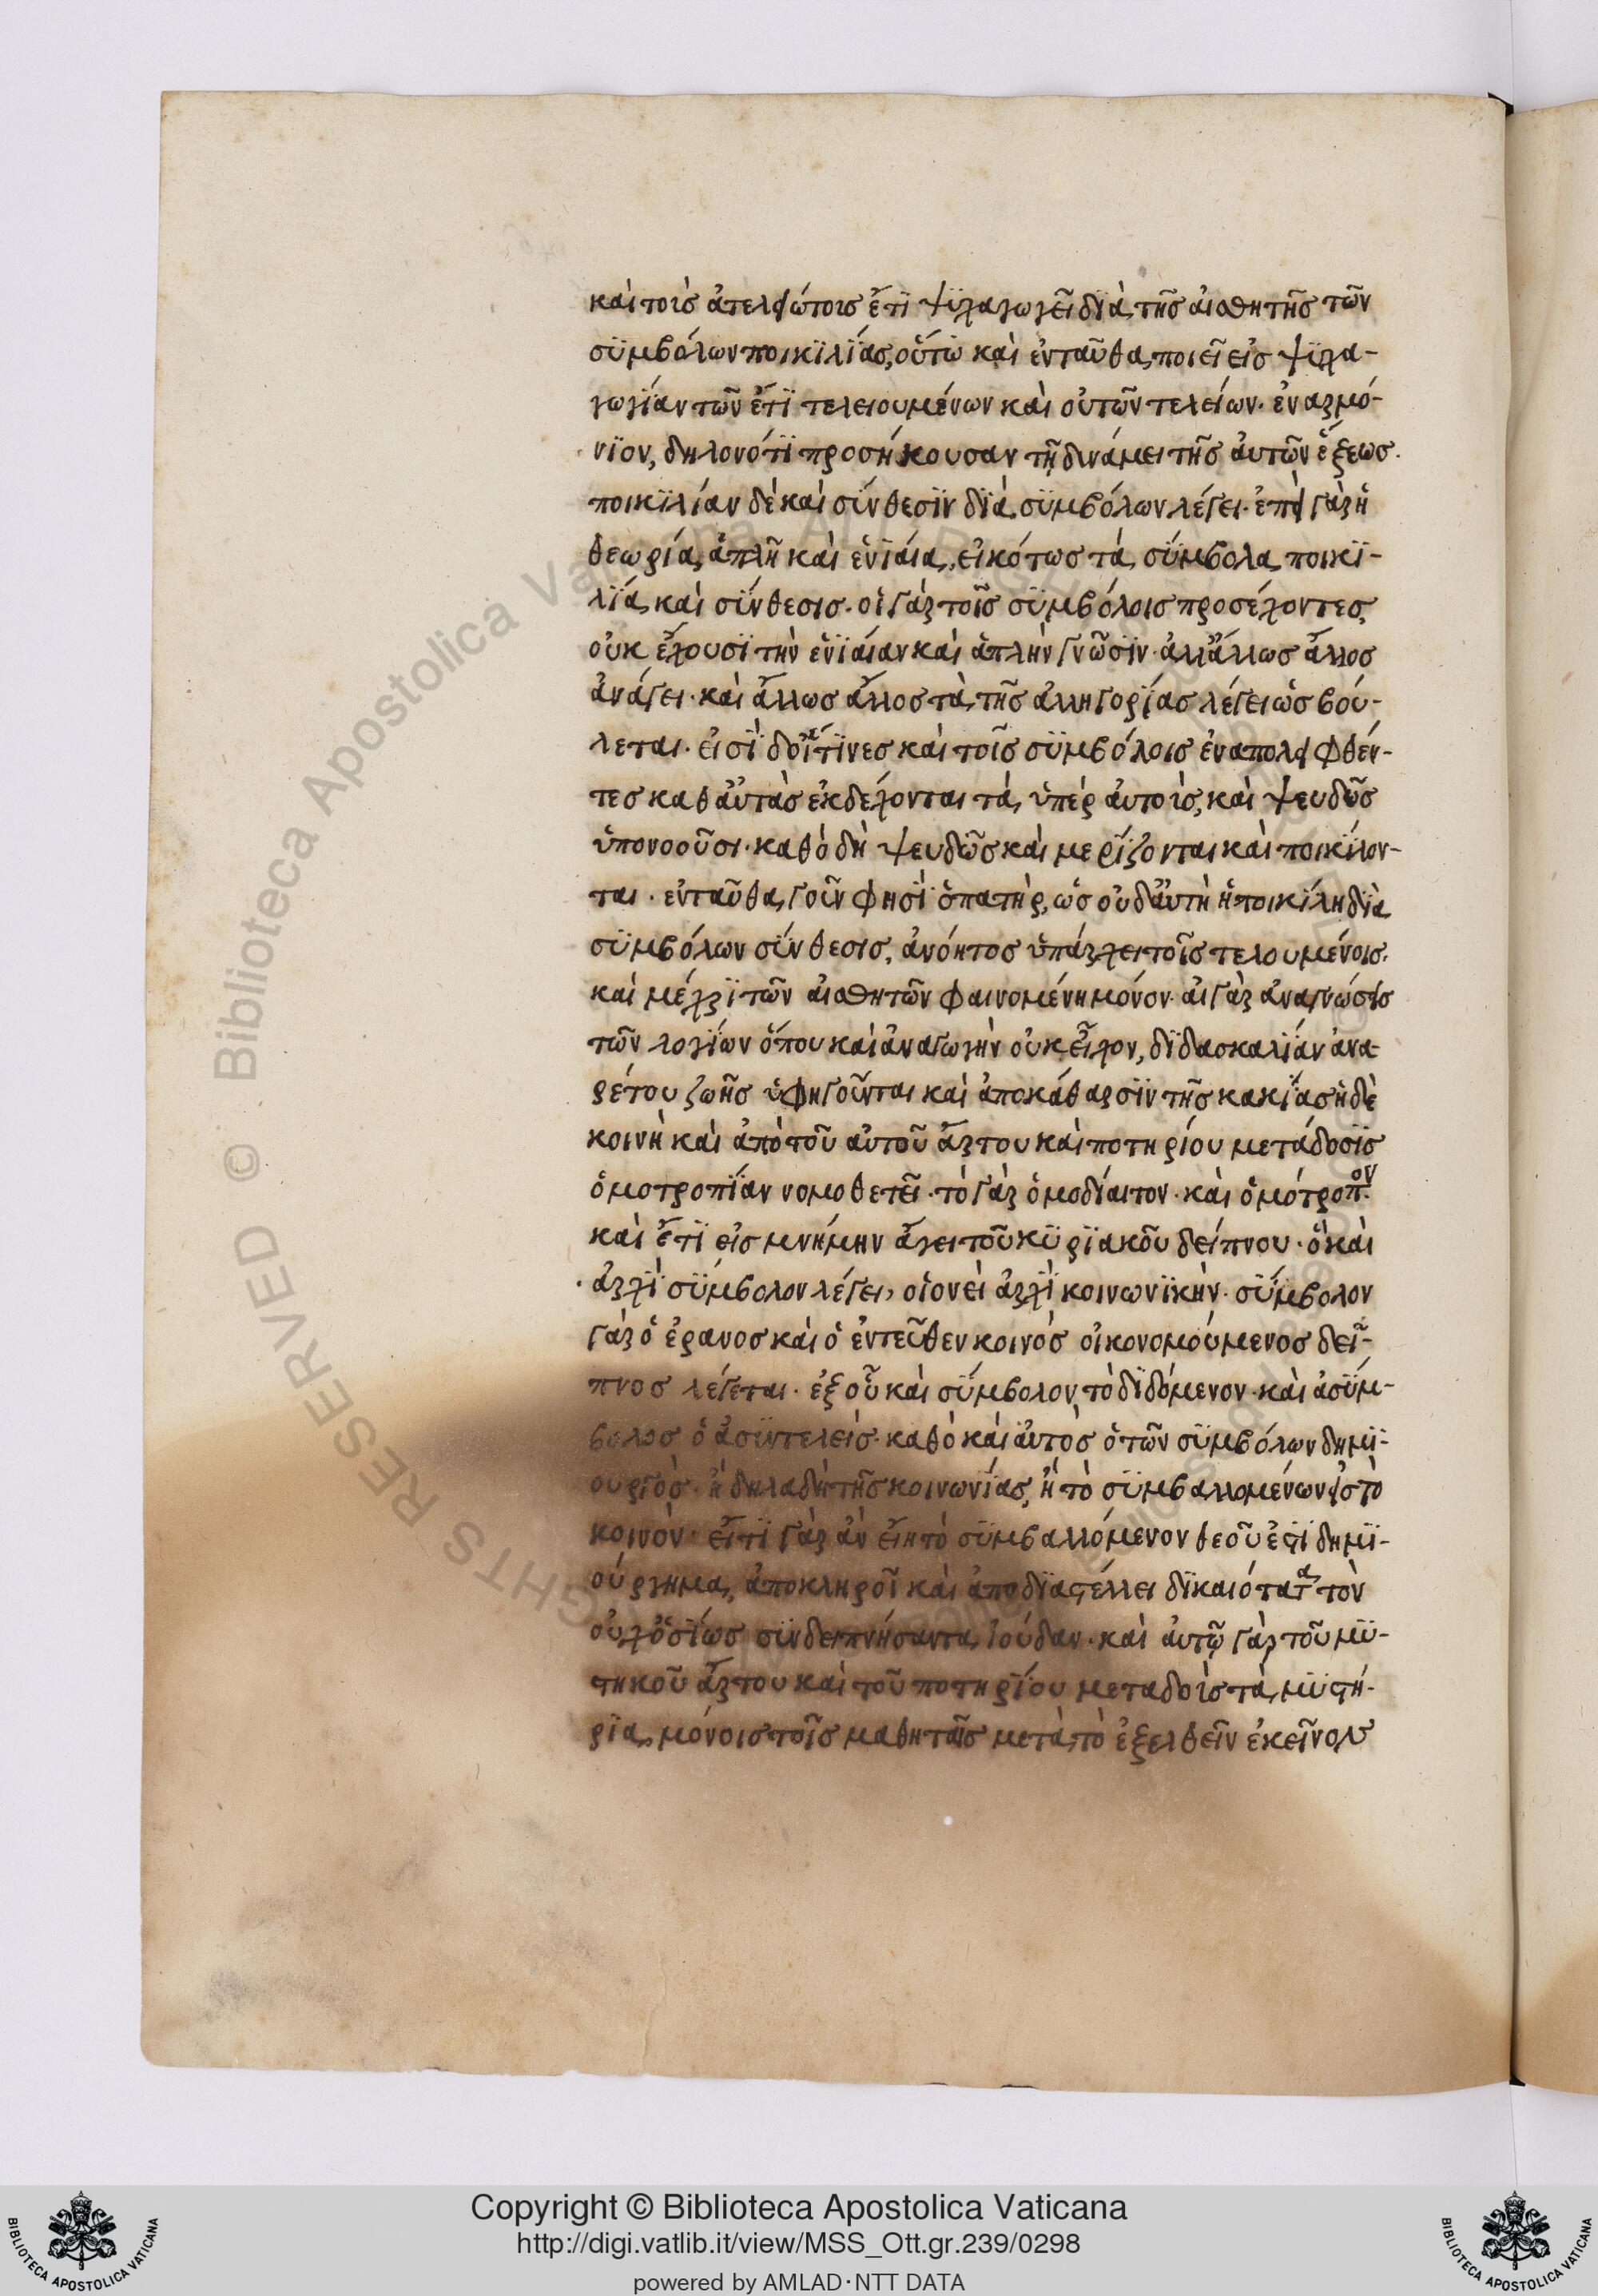 καὶ τοῖς ἀτελεστέροις ἔτι ψυχαγωγεῖ διὰ τῆς αἰσθητῆς τῶν
σϋμβόλων ποικϊλΐας, οὕτω καὶ ἐνταῦθα ποιεῖ εἰς ψϋχα-
γωγΐαν τῶν ἔτϊ τελειουμένων καὶ οὐ τῶν τελείων. ἐναρμό-
νϊον, δηλονότϊ προσήκουσαν τῇ δυνάμει τῆς αὐτῶν ἕξεως.
ποικϊλίαν δὲ καὶ σύνθεσϊν δϊὰ σϋμβόλων λέγει. ἐπεὶ γὰρ ἡ
θεωρία ἁπλῆ καὶ ἑνϊαία, εἰκότως τὰ σύμβολα ποικϊ-
λΐα καὶ σύνθεσις. οἱ γὰρ τοῖς σϋμβόλοις προσέχοντες,
οὐκ ἔχουσϊ τὴν ἑνϊαίαν καὶ ἁπλὴν γνῶσϊν. ἀλλ' ἄλλως ἄλλος
ἀνάγει. καὶ ἄλλως ἄλλος τὰ τῆς ἀλληγορΐας λέγει ὡς βού-
λεται. εἰσῒ δ' οἵτϊνες καὶ τοῖς σϋμβόλοις ἐναπολειφθέν-
τες καθ' αὑτὰς ἐκδέχονται τὰ ὑπὲρ αὐτοὺς, καὶ ψευδῶς
ὑπονοοῦσι. καθὸ δὴ ψευδῶς καὶ μερΐζονται καὶ ποικΐλλον-
ται. ἐνταῦθα γοῦν φησῒ ὁ πατὴρ, ὡς οὐδ' αὐτὴ ἡ ποικΐλη δϊὰ
σϋμβόλων σύνθεσις, ἀνόητος ὑπάρχει τοῖς τελουμένοις.
καὶ μέχρϊ τῶν αἰσθητῶν φαινομένη μόνον. αἱ γὰρ ἀναγνώσεις
τῶν λογΐων ὅπου καὶ ἀναγωγὴν οὐκ εἶχον, δϊδασκαλΐαν ἐνα-
ρέτου ζωῆς ὑφηγοῦνται καὶ ἀποκάθαρσϊν τῆς κακΐας ἡ δὲ
κοινὴ καὶ ἀπὸ τοῦ αὐτοῦ ἄρτου καὶ ποτηρίου μετάδοσϊς
ὁμοτροπΐαν νομοθετεῖ. τὸ γὰρ ὁμοδΐαιτον. καὶ ὁμότροπον.
καὶ ἔτϊ εἰς μνήμην ἄγει τοῦ κϋρϊακοῦ δείπνου. ὃ καὶ
ἀρχῒ σΰμβολον λέγει, οἱονεὶ ἀρχῒ κοινωνϊκὴν. σΰμβολον
γὰρ ὁ ἔρανος καὶ ὁ ἐντεῦθεν κοινὸς οἰκονομούμενος δεῖ-
πνος λέγεται. ἐξ οὗ καὶ σΰμβολον, τὸ δϊδόμενον. καὶ ἀσΰμ-
βολος ὁ ἀσϋντελεὶς. καθὸ καὶ αὐτὸς ὁ τῶν σϋμβόλων δημϊ-
ουργὸς. ἢ δηλαδὴ τῆς κοινωνΐας, ἢ τὸ σϋμβαλλομένων εἰς τὸ
κοινὸν. εἴτϊ γὰρ ἂν εἴη τὸ σϋμβαλλόμενον θεοῦ ἐστῒ δημϊ-
ούργημα, ἀποκληροῖ καὶ ἀποδϊαστέλλει δϊκαιότατα τὸν
οὐχ ὁσΐως σϋνδειπνήσαντα ἰούδαν. καὶ αὐτῷ γὰρ τοῦ μϋ-
στηκοῦ ἄρτου καὶ τοῦ ποτηρΐου μεταδοὺς τὰ μϋστή-
ρϊα, μόνοις τοῖς μαθηταῖς μετὰ τὸ ἐξελθεῖν ἐκεῖνον
Copyright © Biblioteca Apostolica Vaticana
http://digi.vatlib.it/view/MSS_Ott.gr.239/0298
powered by AMLAD·NTT DATA